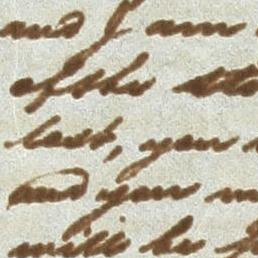 and I am
of the
last, you
and your
will be